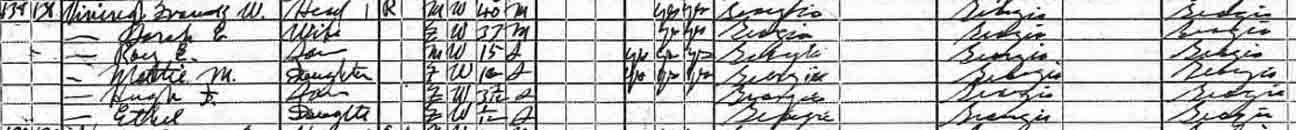 138 138 Francis W. Head 1 R M W 40 M yes yes Georgia Georgia Georgia
— Sarah E Wife F W 37 M yes yes Georgia Georgia Georgia
— Roy E. Son M W 15 S yes yes yes Georgia Georgia Georgia
— Mattie M. Daughter F W S yes yes yes Georgia Georgia Georgia
— Hugh Son W S Georgia Georgia Georgia
— Ethel Daughter F W S Georgia Georgia Georgia